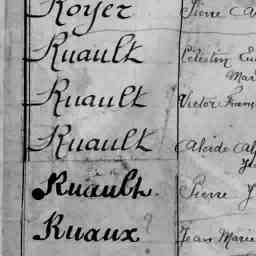 Royer Pierre
Ruault Célestin
Mar
Ruault Victor
Ruault Alcide
Ruault. Pierre J
Ruaux ? Jean Marie